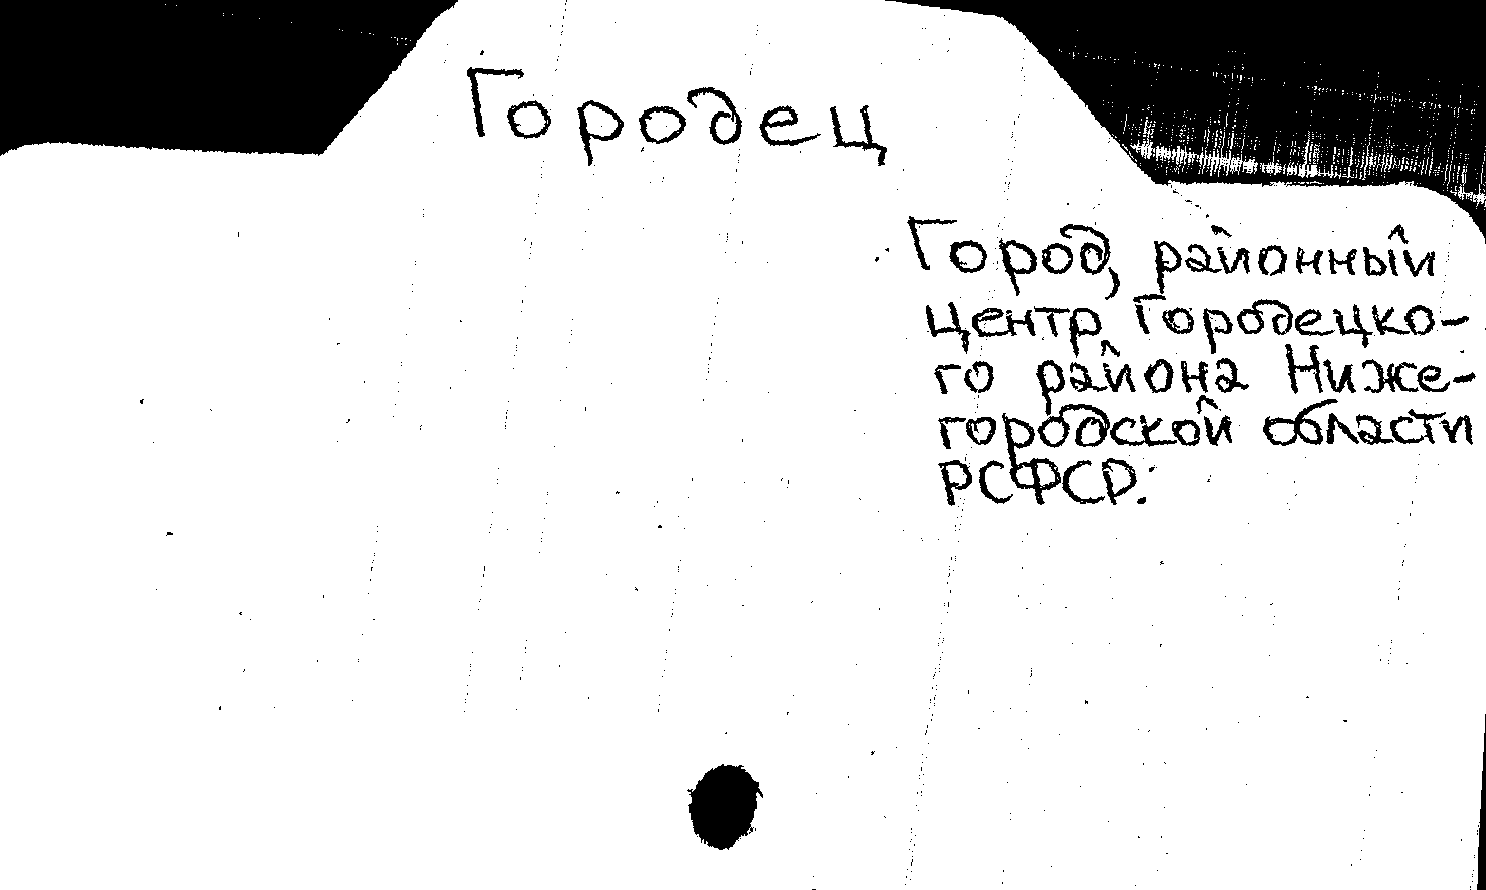 Городец
Город, районный
центр Городецко-
го района Ниже-
городской области
РСФСР.